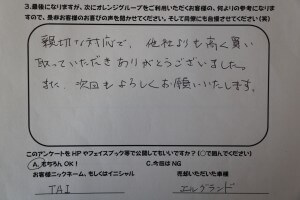 3.最後になりますが、次にオレンジグループをご利用いただくお客様の、何よりの参考になりま
すので、是非お客様のお喜びの声を聞かせてください。そして同僚にも自慢させてください(笑)
親切な対応で、他社よりも高く買い
取っていただきありがとうございました。
また、次回もよろしくお願いいたします。
このアンケートをHPやフェイスブック等で公開してもいいですか?(○で囲んでください)
A.もちろん、OK! C.今回はNG
お客様ニックネーム、もしくはイニシャル 売却いただいた車種
TAI エルグランド